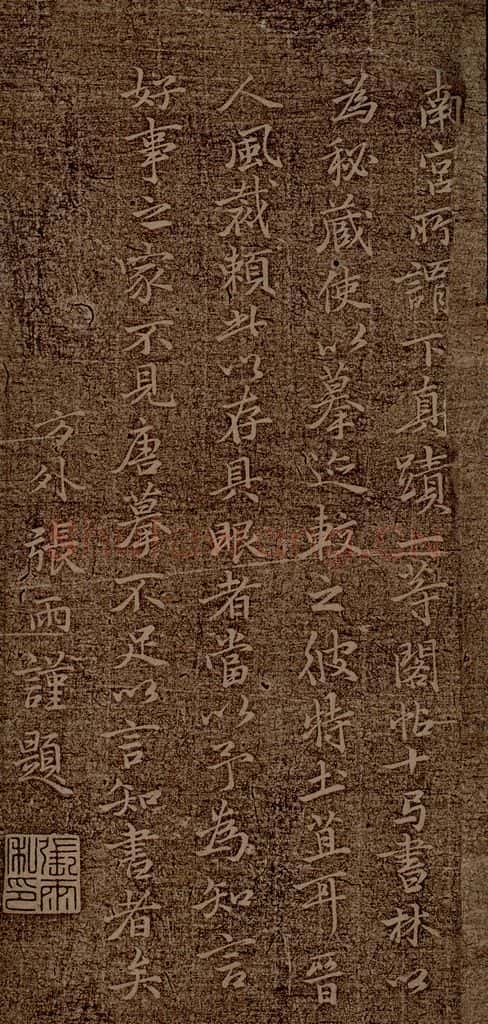 南宮所謂下真蹟一等閣帖十弓書林以
為秘蔵使以摹迹較之彼特土苴耳晉
人風裁賴此以存具眼者當以予為知言
好事之家不見唐摹不足以言知書者矣
方外張雨謹題
張雨私印